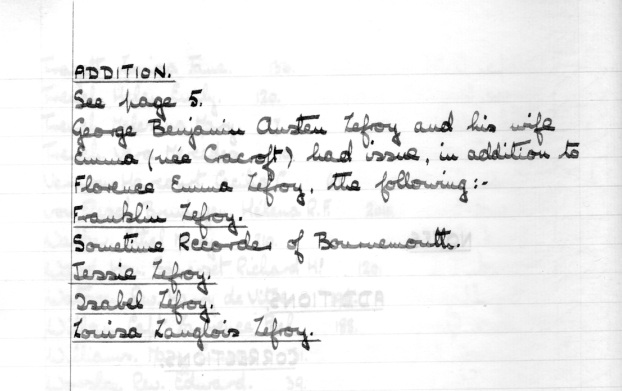 ADDITION.
See page 5.
George Benjamin Austen Lefroy and his wife
Emma (née Cracroft) had issue, in addition to
Florence Emma Lefroy, the following:-
Franklin Lefroy.
Sometime Recorder of Bournemouth.
Jessie Lefroy.
Isabel Lefroy.
Louisa Langlois Lefroy.